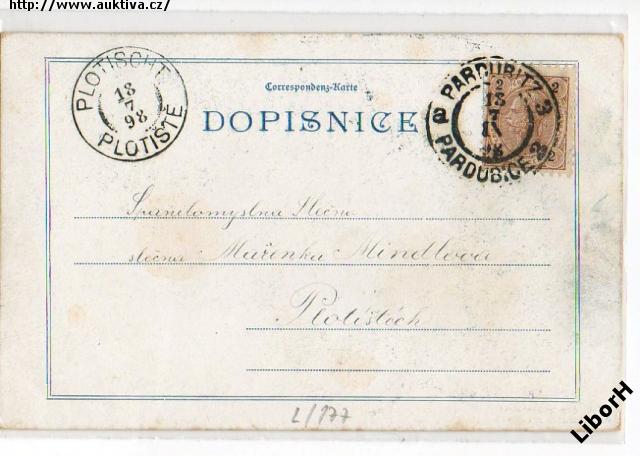 http://www.auktiva.cz/
PLOTISCHT
18
7
98
PLOTIŠTĚ
Correspondenz-Karte
DOPISNICE
PARDUBITZ 3
13
7
98
a
PARDUBICE
2
2
2
slečna Mařenka Mindlova
Plotištěch
L/177
LiborH